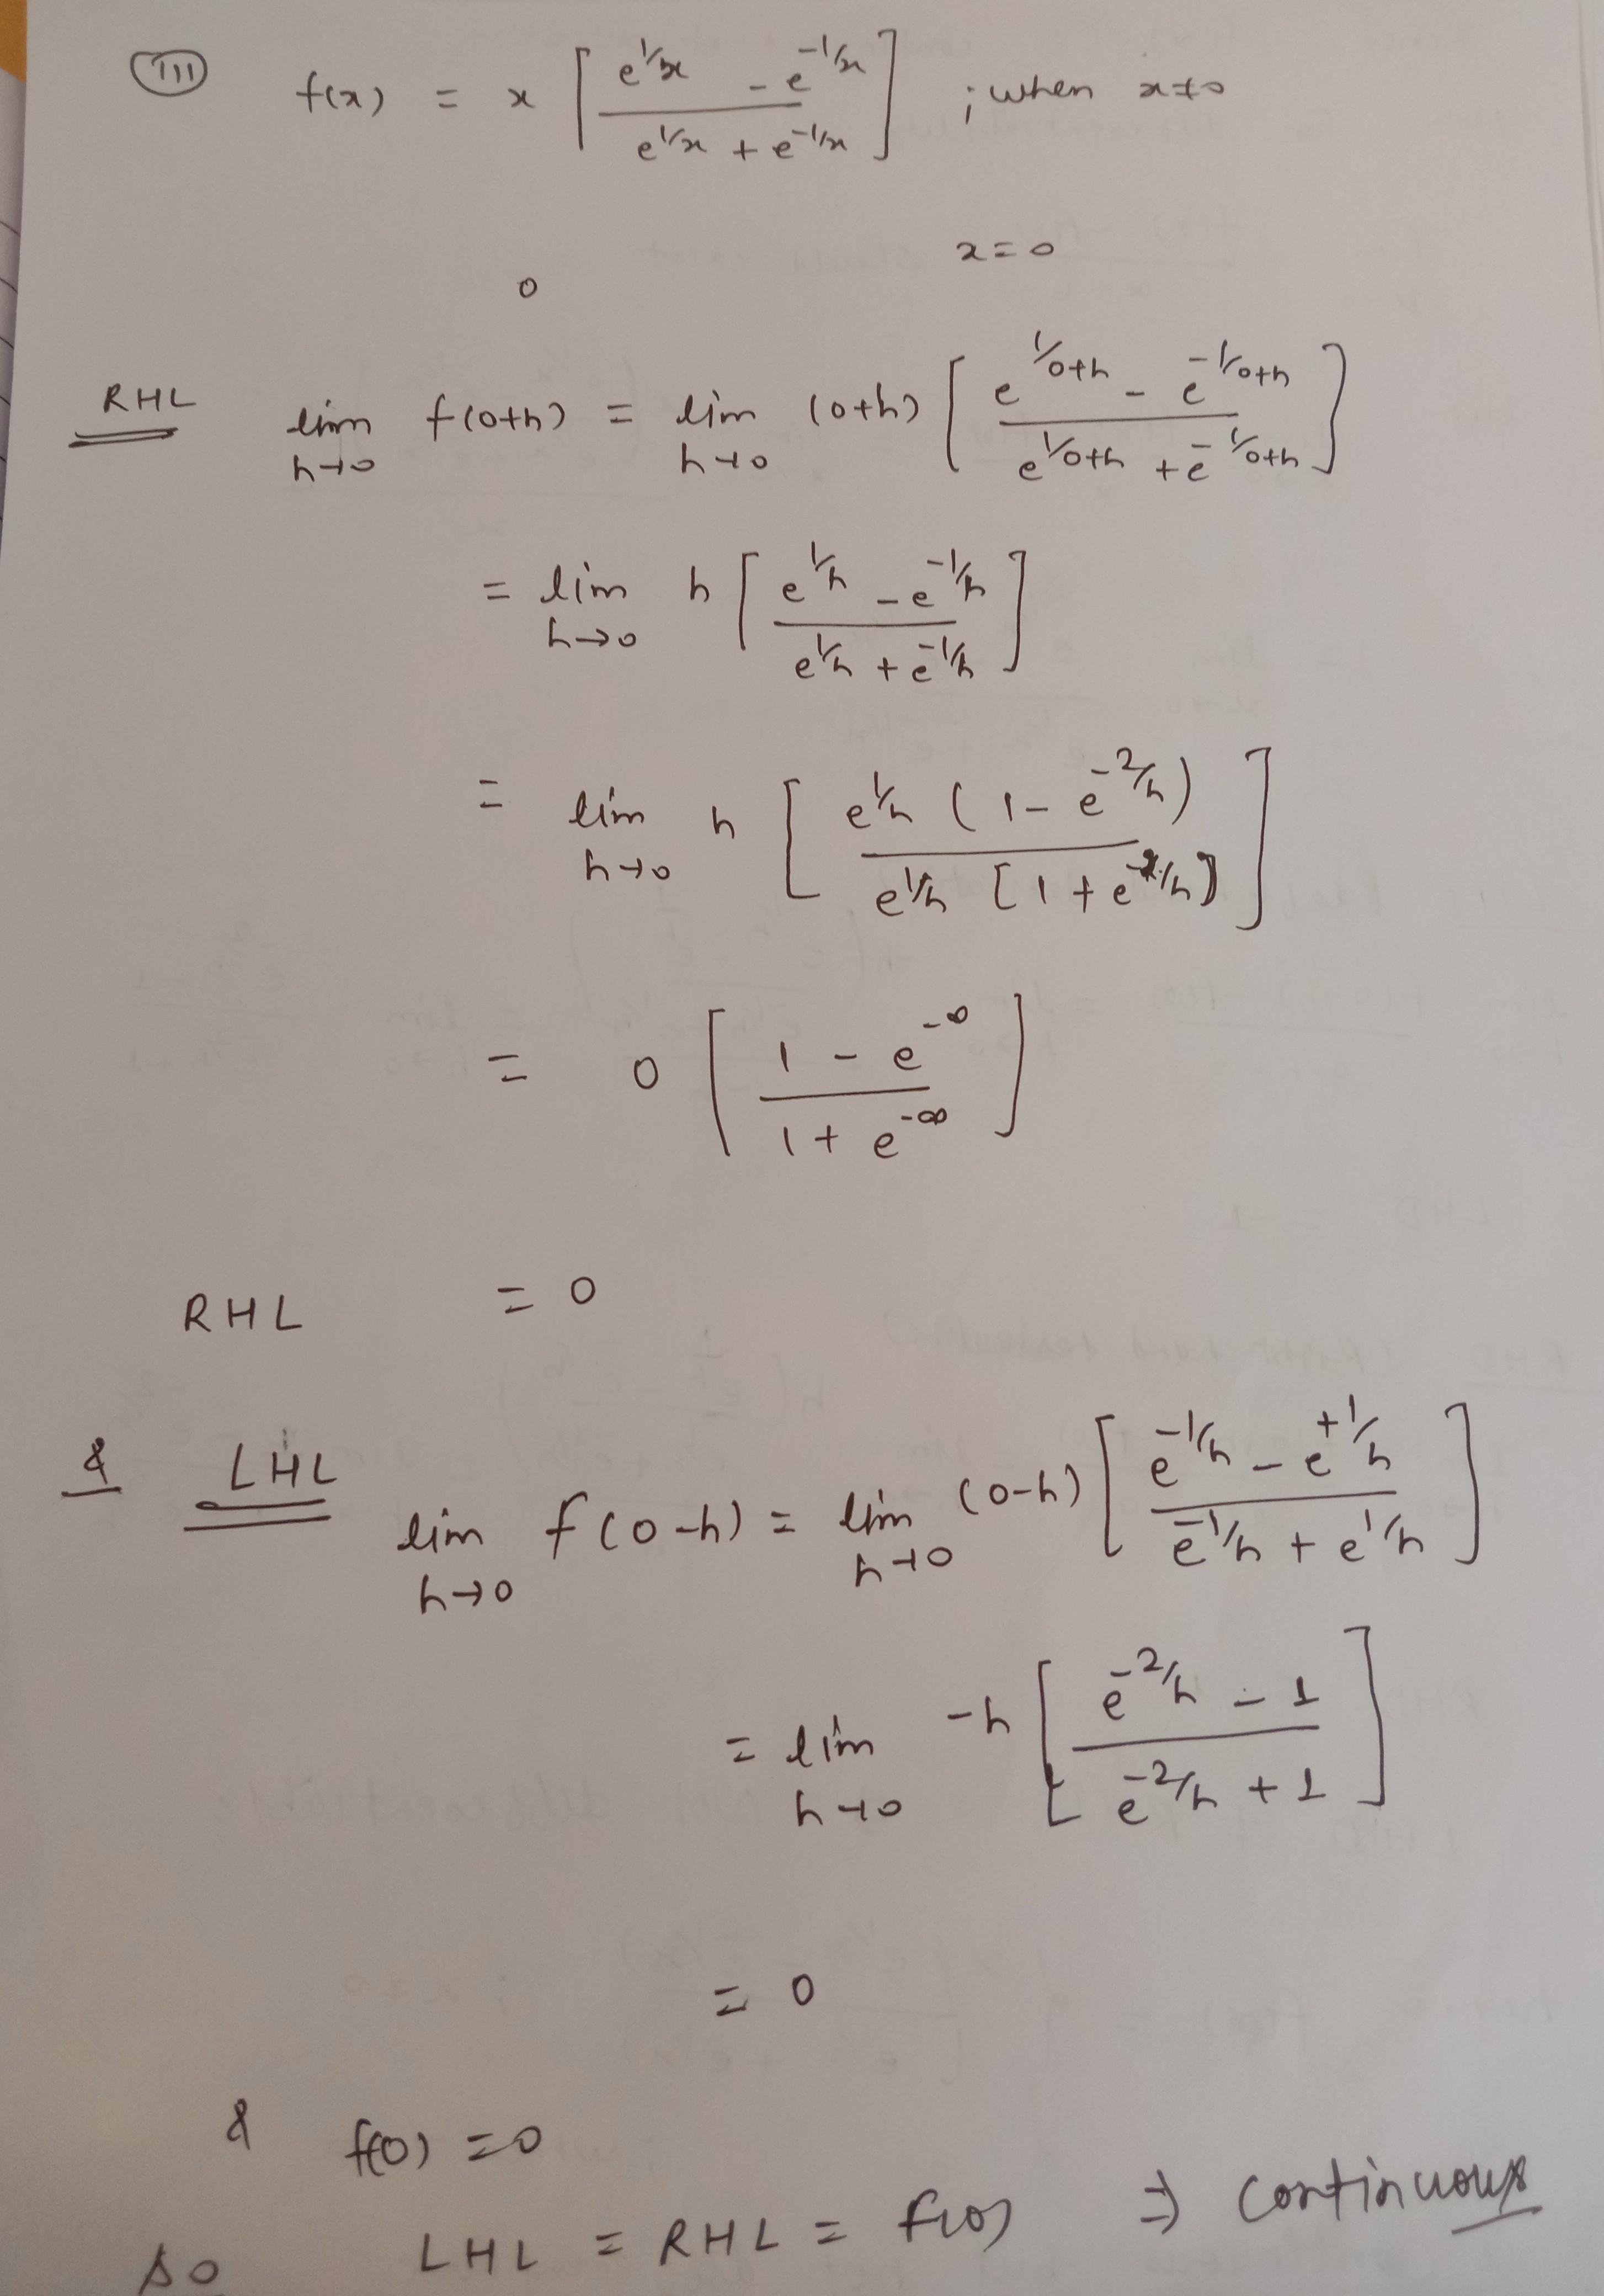 (III) f(x) = x [ (e^{1/x} - e^{-1/x}) / (e^{1/x} + e^{-1/x}) ] ; when x≠0
x=0
0
RHL lim_{h→0} f(0+h) = lim_{h→0} (0+h) [ (e^{1/0+h} - e^{-1/0+h}) / (e^{1/0+h} + e^{-1/0+h}) ]
= lim_{h→0} h [ (e^{1/h} - e^{-1/h}) / (e^{1/h} + e^{-1/h}) ]
= lim_{h→0} h [ e^{1/h} (1 - e^{-2/h}) / e^{1/h} [1 + e^{-2/h}] ]
= 0 [ (1 - e^{-∞}) / (1 + e^{-∞}) ]
RHL = 0
& LHL lim_{h→0} f(0-h) = lim_{h→0} (0-h) [ (e^{-1/h} - e^{+1/h}) / (e^{-1/h} + e^{1/h}) ]
= lim_{h→0} -h [ (e^{-2/h} - 1) / (e^{-2/h} + 1) ]
= 0
& f(0) = 0
so LHL = RHL = f(0) ⇒ continuous